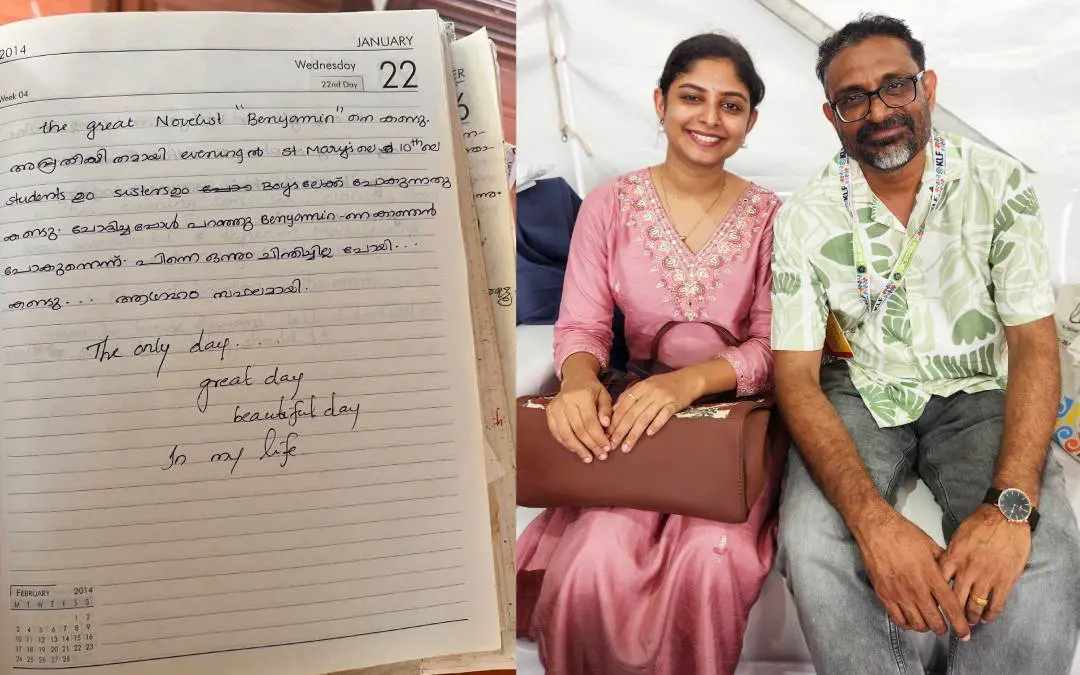 2014
JANUARY
Wednesday
22
22nd Day
Week 04
the great Novelist "Benyamin" നെ കണ്ടു.
അപ്രതീക്ഷിതമായി evening ൽ St Mary's ലെ 10th ലെ
students ഉം sisters ഉം Boys ലേക്ക് പോകുന്നതു
കണ്ടു. ചോദിച്ചപ്പോൾ പറഞ്ഞു Benyamin -നെ കാണാൻ
പോകുന്നെന്ന്. പിന്നെ ഒന്നും ചിന്തിച്ചില്ല പോയി...
കണ്ടു... ആഗ്രഹം സഫലമായി.
The only day....
great day
beautiful day
In my life
FEBRUARY 2014
M T W T F S S
1 2
3 4 5 6 7 8 9
10 11 12 13 14 15 16
17 18 19 20 21 22 23
24 25 26 27 28
KLF
KLF